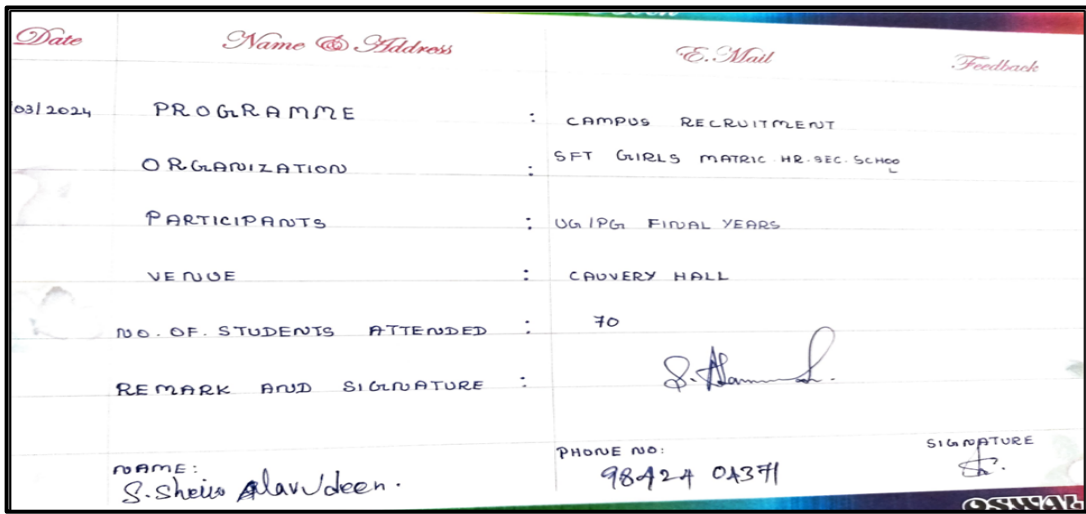 Date Name & Address E.Mail Feedback
03/2024 PROGRAMME : CAMPUS RECRUITMENT
ORGANIZATION : SFT GIRLS MATRIC. HR. SEC. SCHOOL
PARTICIPANTS : UG/PG FINAL YEARS
VENUE : CAUVERY HALL
NO. OF. STUDENTS ATTENDED : 70
REMARK AND SIGNATURE :
NAME: PHONE NO: SIGNATURE
S. Alavudeen. 98424 04371